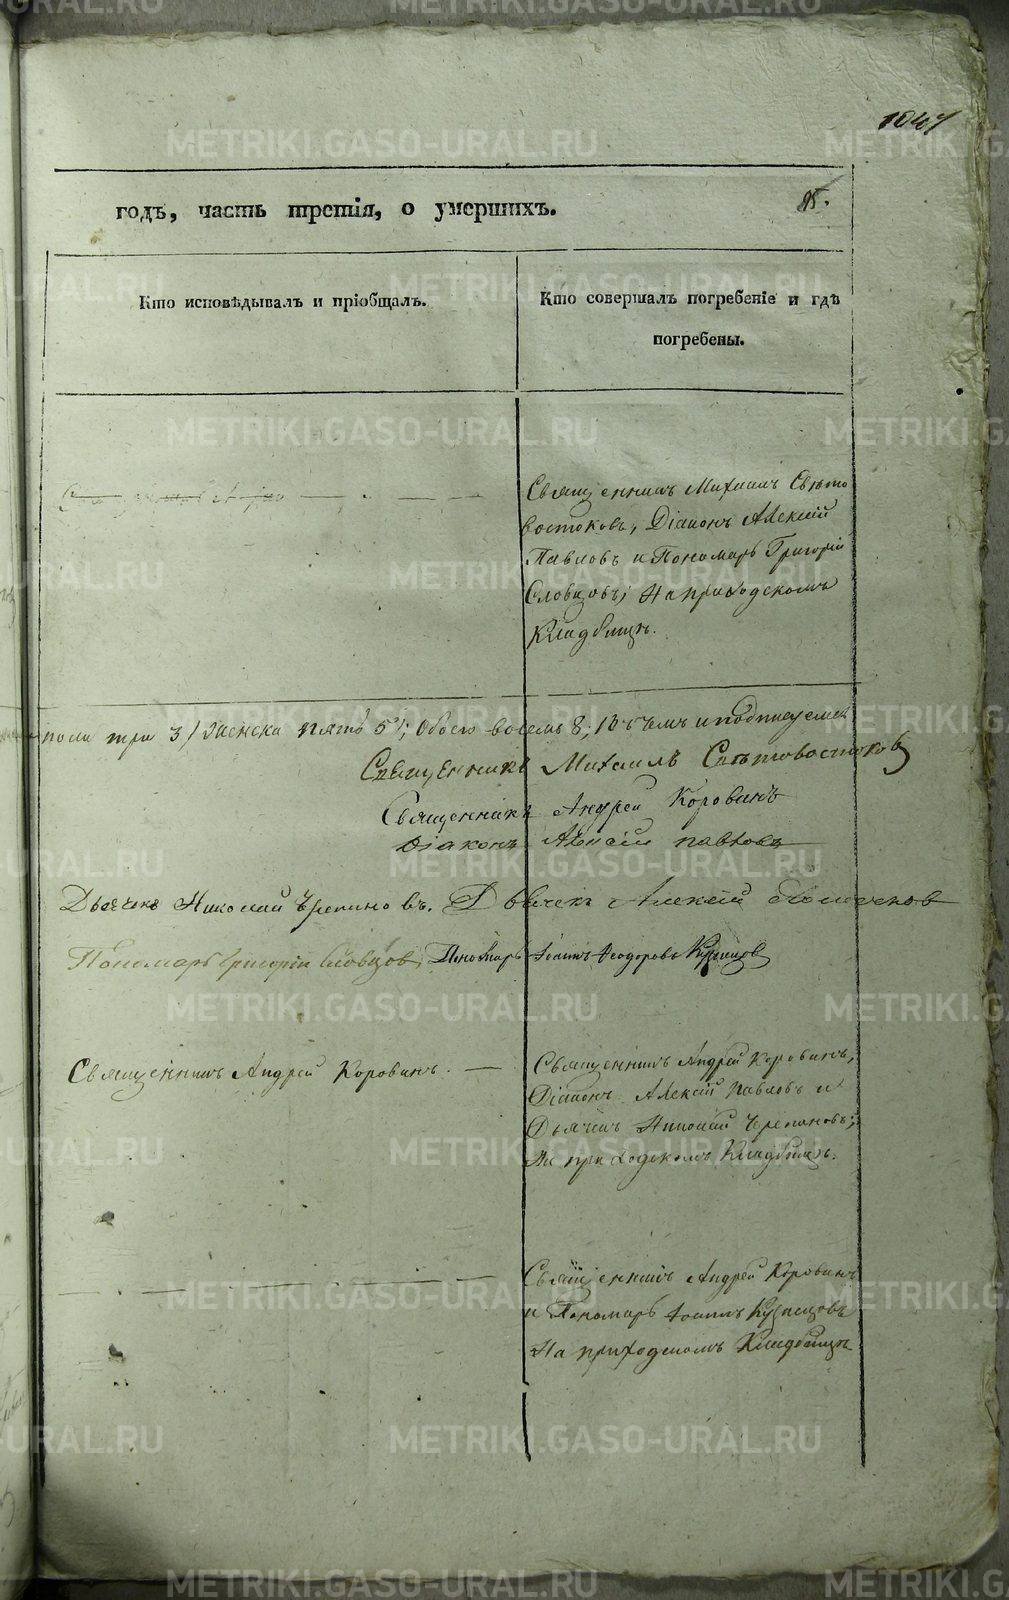 1047
годъ, часть третія, о умершихъ.
85.
Кто исповѣдывалъ и пріобщалъ.
Кто совершалъ погребеніе и гдѣ
погребены.
Священникъ Михаилъ Свѣто
востоковъ, Діаконъ Алексій
Павловъ и Пономарь Григорій
Словцовъ; На приходскомъ
Кладбищѣ.
пола три 3, женска пять 5, Обоего восемь 8; Въ чемъ и подписуемся
Священникъ Михаилъ Свѣтовостоковъ
Священникъ Андрей Коровинъ
Діаконъ Алексій Павловъ
Дьячекъ Николай Черепановъ. Дьячекъ Алексій
Пономарь Григорій Словцовъ, Пономарь Іоаннъ Феодоровъ Кузнецовъ
Священникъ Андрей Коровинъ.
Священникъ Андрей Коровинъ,
Діаконъ Алексій Павловъ и
Дьячекъ Николай Черепановъ;
На приходскомъ Кладбищѣ.
Священникъ Андрей Коровинъ
и Пономарь Іоаннъ Кузнецовъ
На приходскомъ Кладбищѣ
METRIKI.GASO-URAL.RU